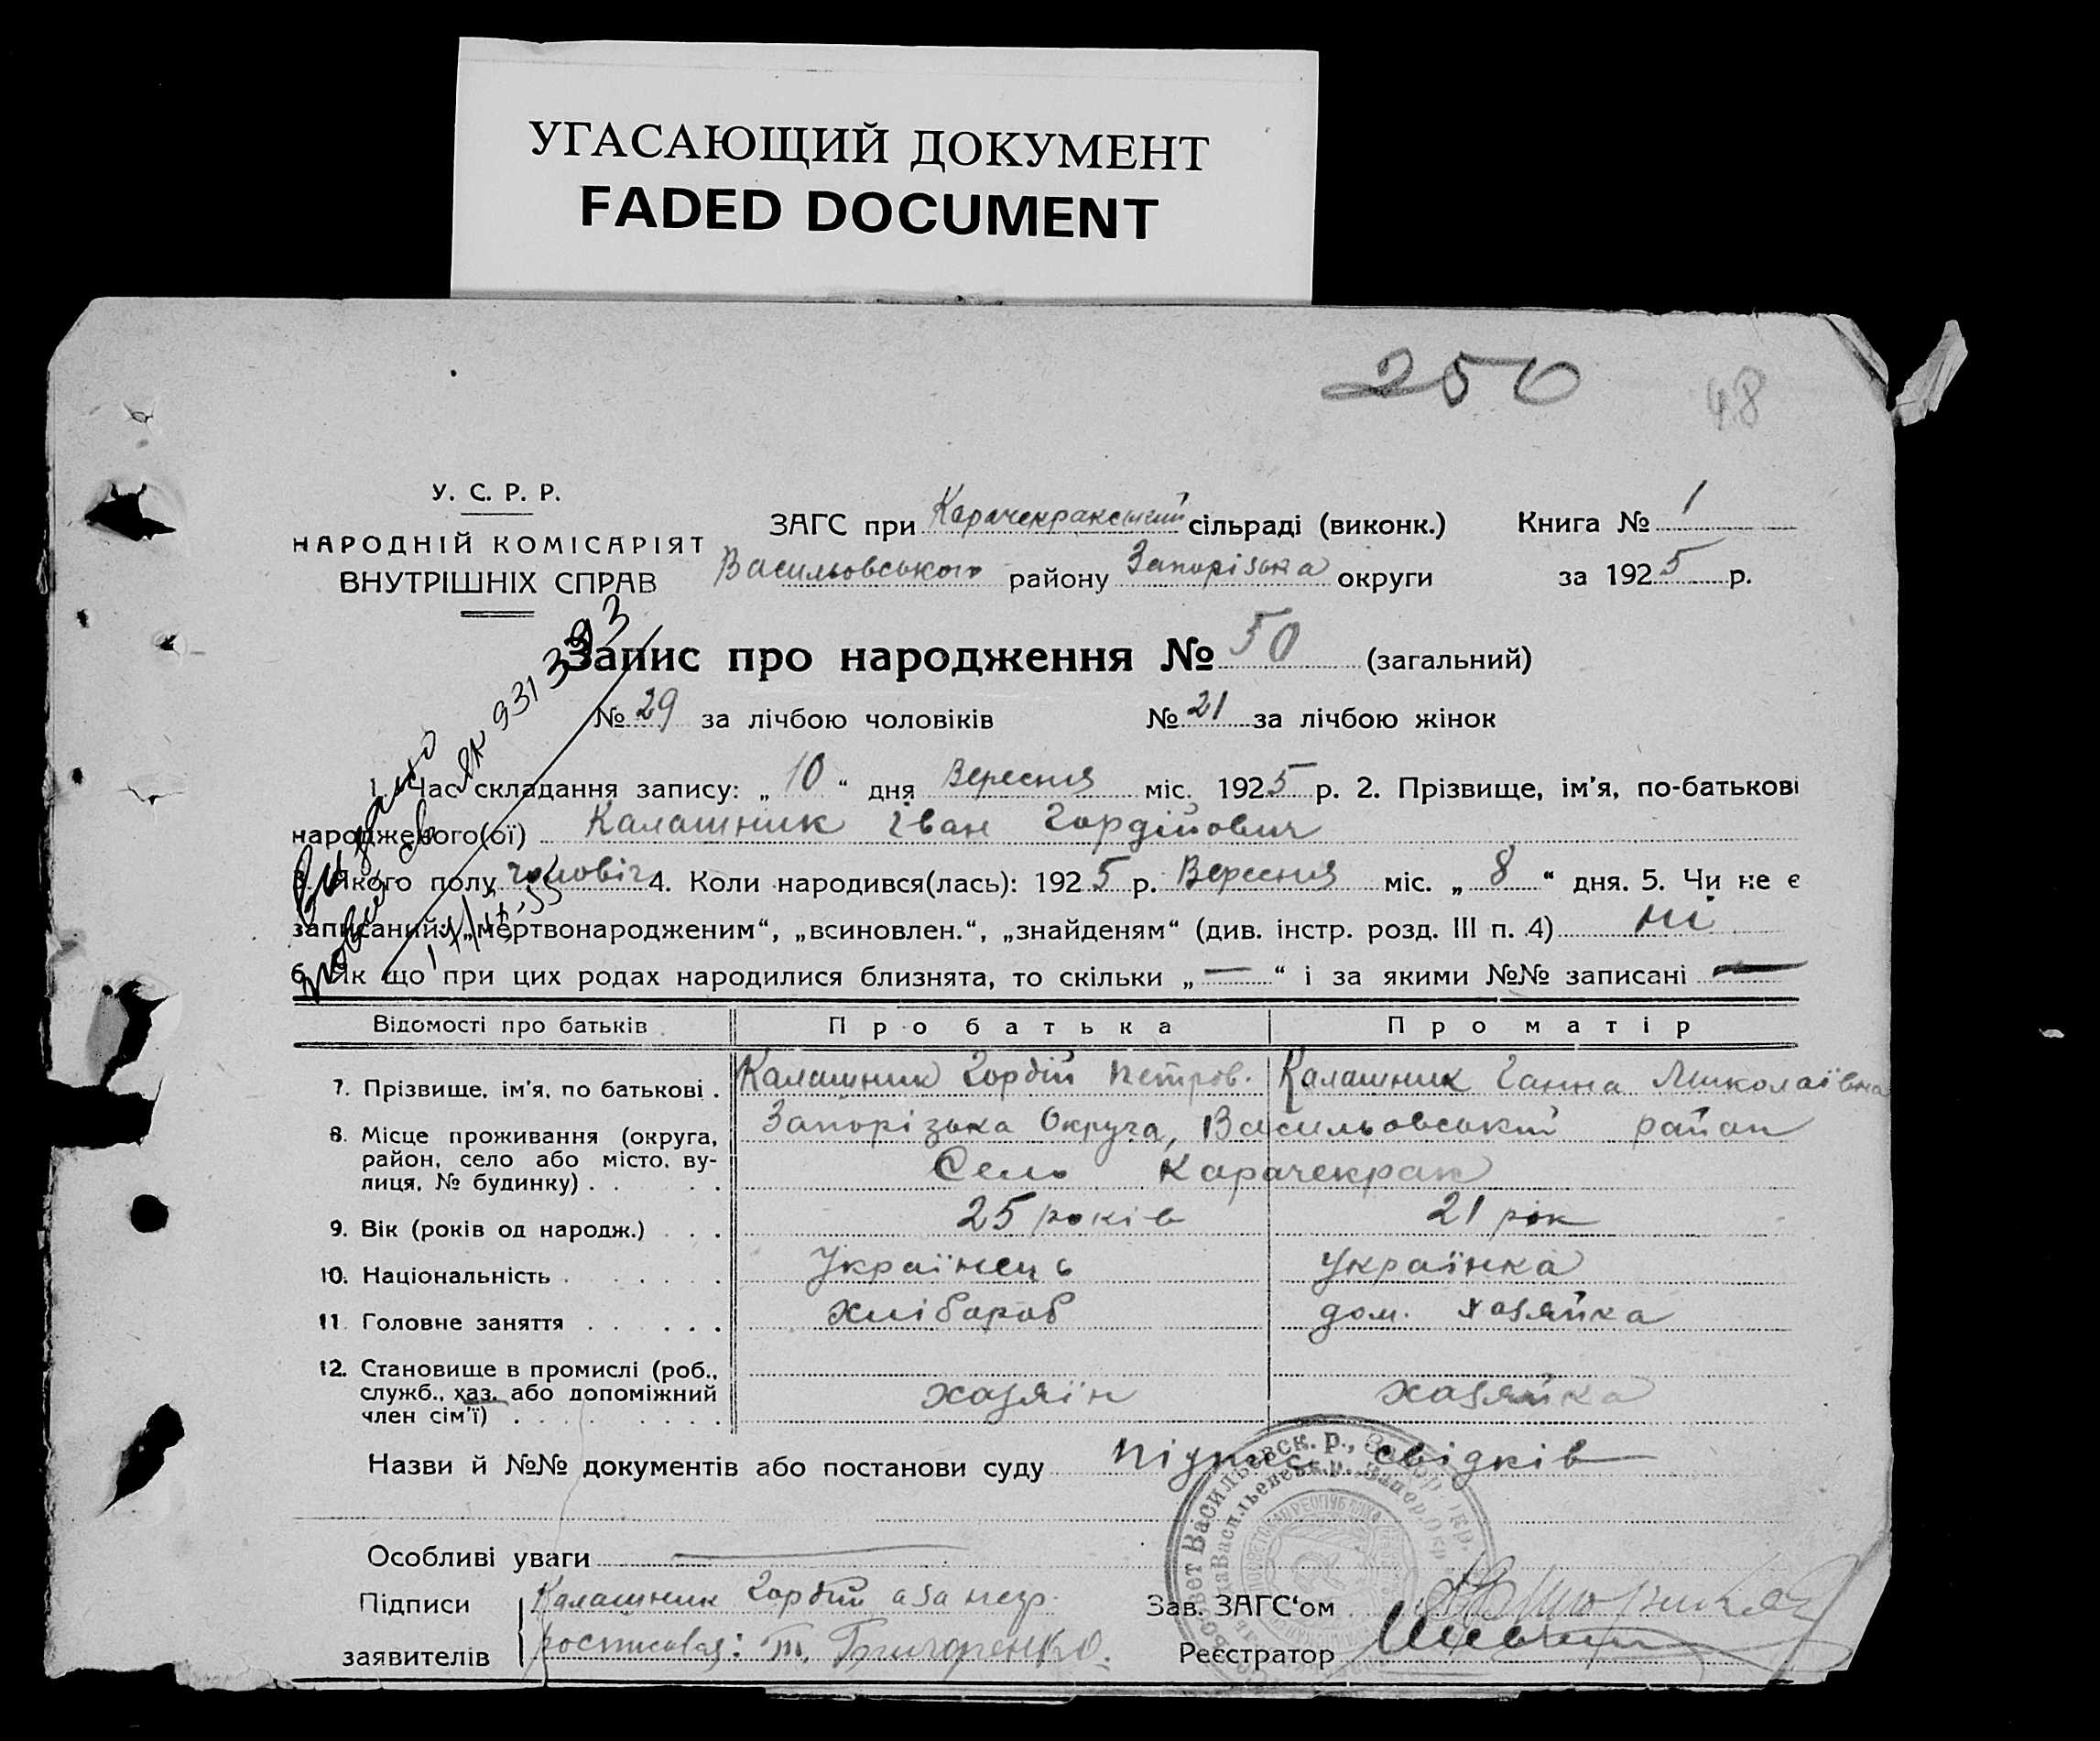 УГАСАЮЩИЙ ДОКУМЕНТ
FADED DOCUMENT
250
48
У. С. Р. Р.
НАРОДНІЙ КОМІСАРІЯТ
ВНУТРІШНІХ СПРАВ
ЗАГС при Карачекракський сільраді (виконк.) Книга № 1
Васильовського району Запорізька округи за 1925 р.
Запис про народження № 50 (загальний)
№ 29 за лічбою чоловіків № 21 за лічбою жінок
1. Час складання запису: „10“ дня Вересня міс. 1925 р. 2. Прізвище, ім'я, по-батькові
народженого(ої) Калашник Іван Гордійович
3. Якого полу чоловіч 4. Коли народився(лась): 1925 р. Вересня міс. „8“ дня. 5. Чи не є
записаний: „мертвонародженим“, „всиновлен.“, „знайденям“ (див. інстр. розд. III п. 4) ні
6. Як що при цих родах народилися близнята, то скільки „—“ і за якими №№ записані —
Выдано
ЯК 931393
Відомості про батьків Про батька Про матір
7. Прізвище, ім'я, по батькові . Калашник Гордій Петров. Калашник Ганна Миколаївна
8. Місце проживання (округа, район, село або місто, вулиця, № будинку) . Запорізька Округа, Васильовський район
Село Карачекрак
9. Вік (років од народж.) . . . 25 років 21 рік
10. Національність . Українець Українка
11. Головне заняття . хлібароб дом. хазяйка
12. Становище в промислі (роб., служб., хаз. або допоміжний член сім'ї) . хазяїн хазяйка
Назви й №№ документів або постанови суду підпис свідків
Особливі уваги —
Підписи заявителів Калашник Гордій а за негр.
росписався: Григоренко.
Зав. ЗАГС'ом
Реєстратор